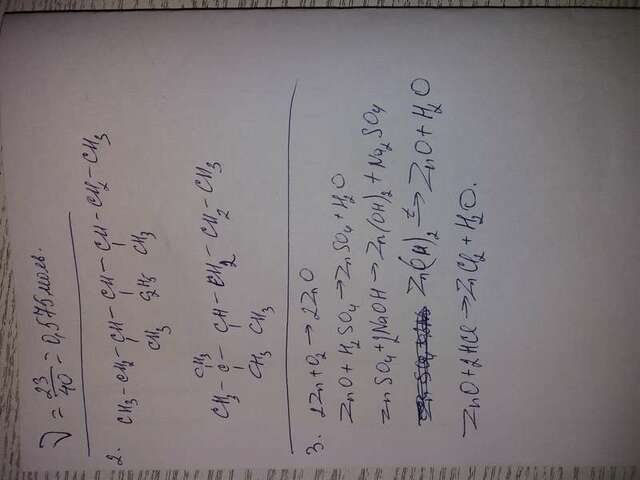 ν = 23/40 = 0,575 моль.
2. CH3-CH2-CH-CH-CH-CH2-CH3
CH3 C2H5 CH3
CH3
CH3-C-CH-CH2-CH2-CH3
CH3 CH3
3. 2Zn+O2→2ZnO
ZnO+H2SO4→ZnSO4+H2O
ZnSO4+2NaOH→Zn(OH)2+Na2SO4
Zn(OH)2 t→ ZnO+H2O
ZnO+2HCl→ZnCl2+H2O.